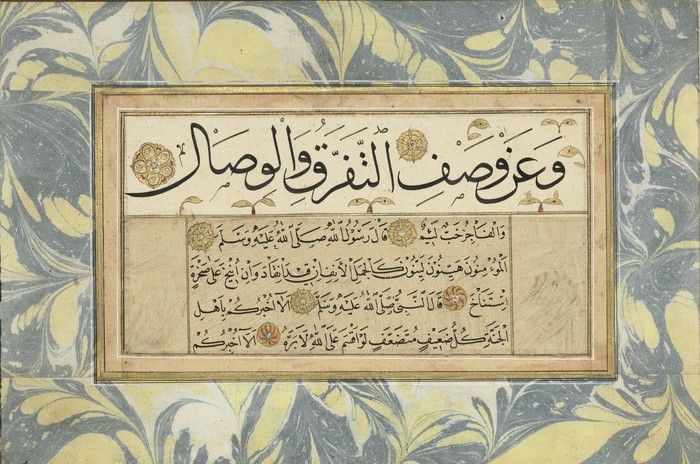 وَعَنْ وَصْفِ التَّفَرُّقِ وَالْوِصَالِ
وَالْفَاجِرُ خَبٌّ لَئِيمٌ قَالَ رَسُولُ اللّٰهِ صَلَّى اللّٰهُ عَلَيْهِ وَسَلَّمَ
اَلْمُؤْمِنُونَ هَيِّنُونَ لَيِّنُونَ كَالْجَمَلِ الْأَنِفِ اِنْ قِيدَ انْقَادَ وَاِنْ اُنِيخَ عَلَى صَخْرَةٍ
اِسْتَنَاخَ قَالَ النَّبِيُّ صَلَّى اللّٰهُ عَلَيْهِ وَسَلَّمَ اَلَا اُخْبِرُكُمْ بِاَهْلِ
الْجَنَّةِ كُلُّ ضَعِيفٍ مُتَضَعَّفٍ لَوْ اَقْسَمَ عَلَى اللّٰهِ لَاَبَرَّهُ اَلَا اُخْبِرُكُمْ